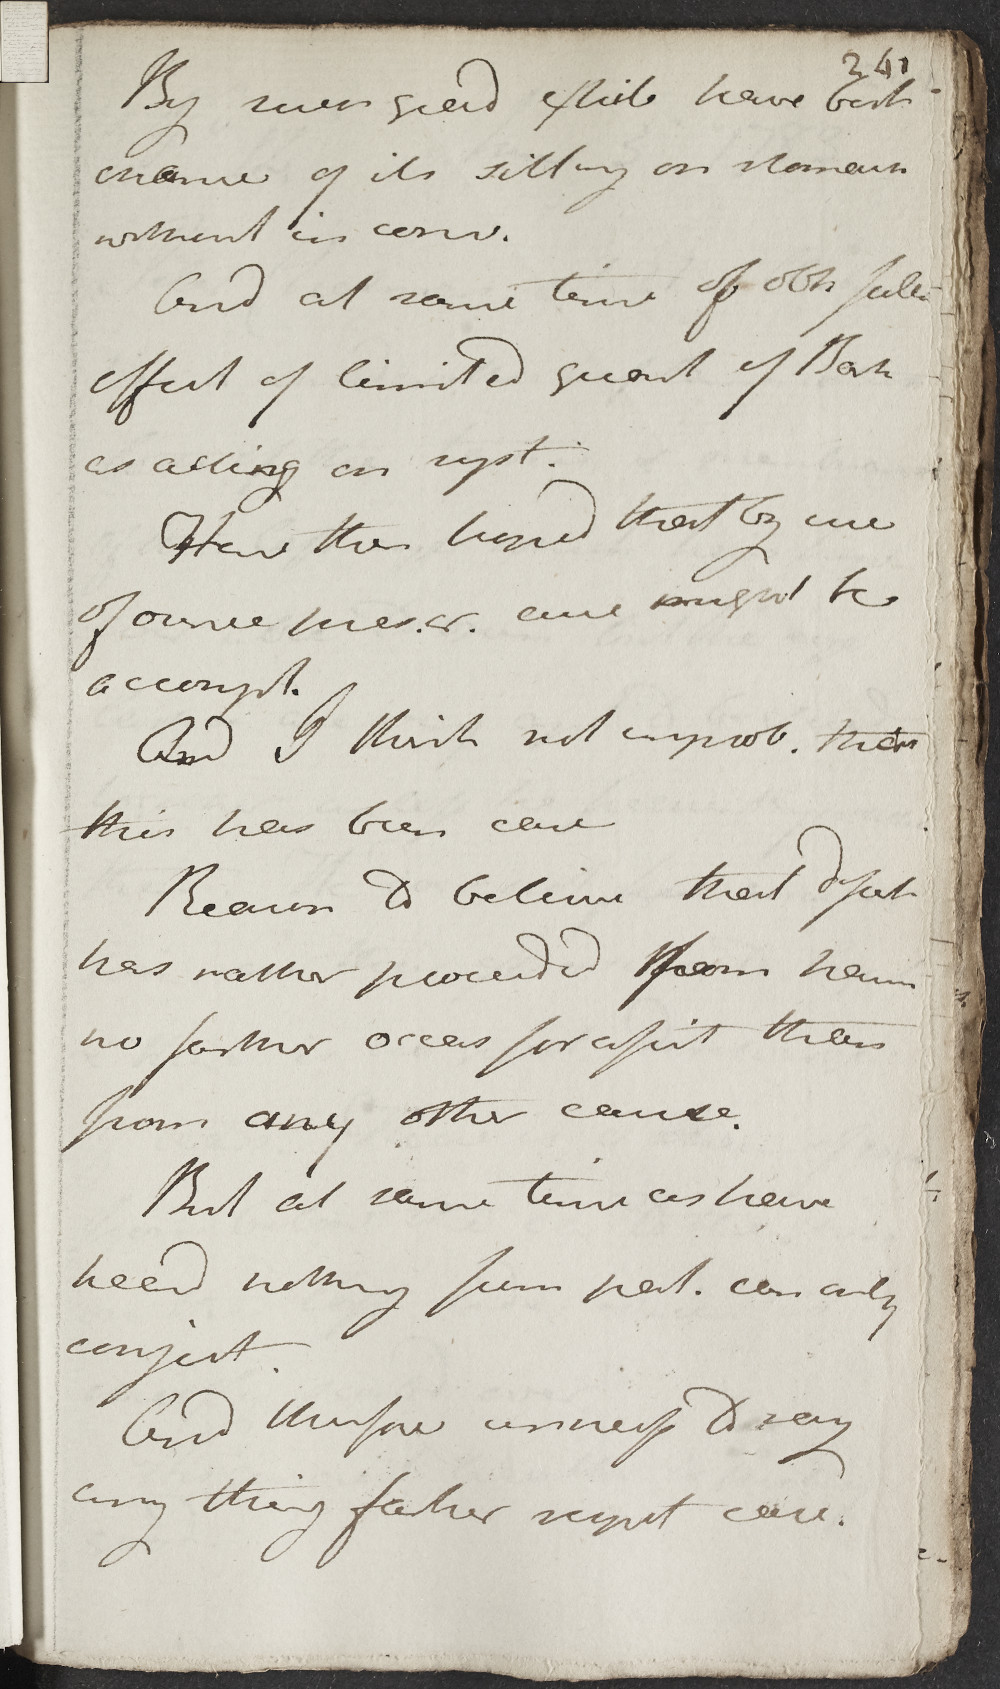 241
By such good have best
chance of its sitting on stomach
without in conv.
And at same time of obt full
effect of limited quant of Bark
as acting on syst.
Have then hoped that by use
of ounce pres.cr. cure might be
accompl.
And I think not improb. that
this has been case
Reason to believe that
has rather proceeded from having
no farther occas for assist than
from any other cause.
But at same time as have
heard nothing from pat. can only
conject.
And therfore unness to say
any thing farther respect case.